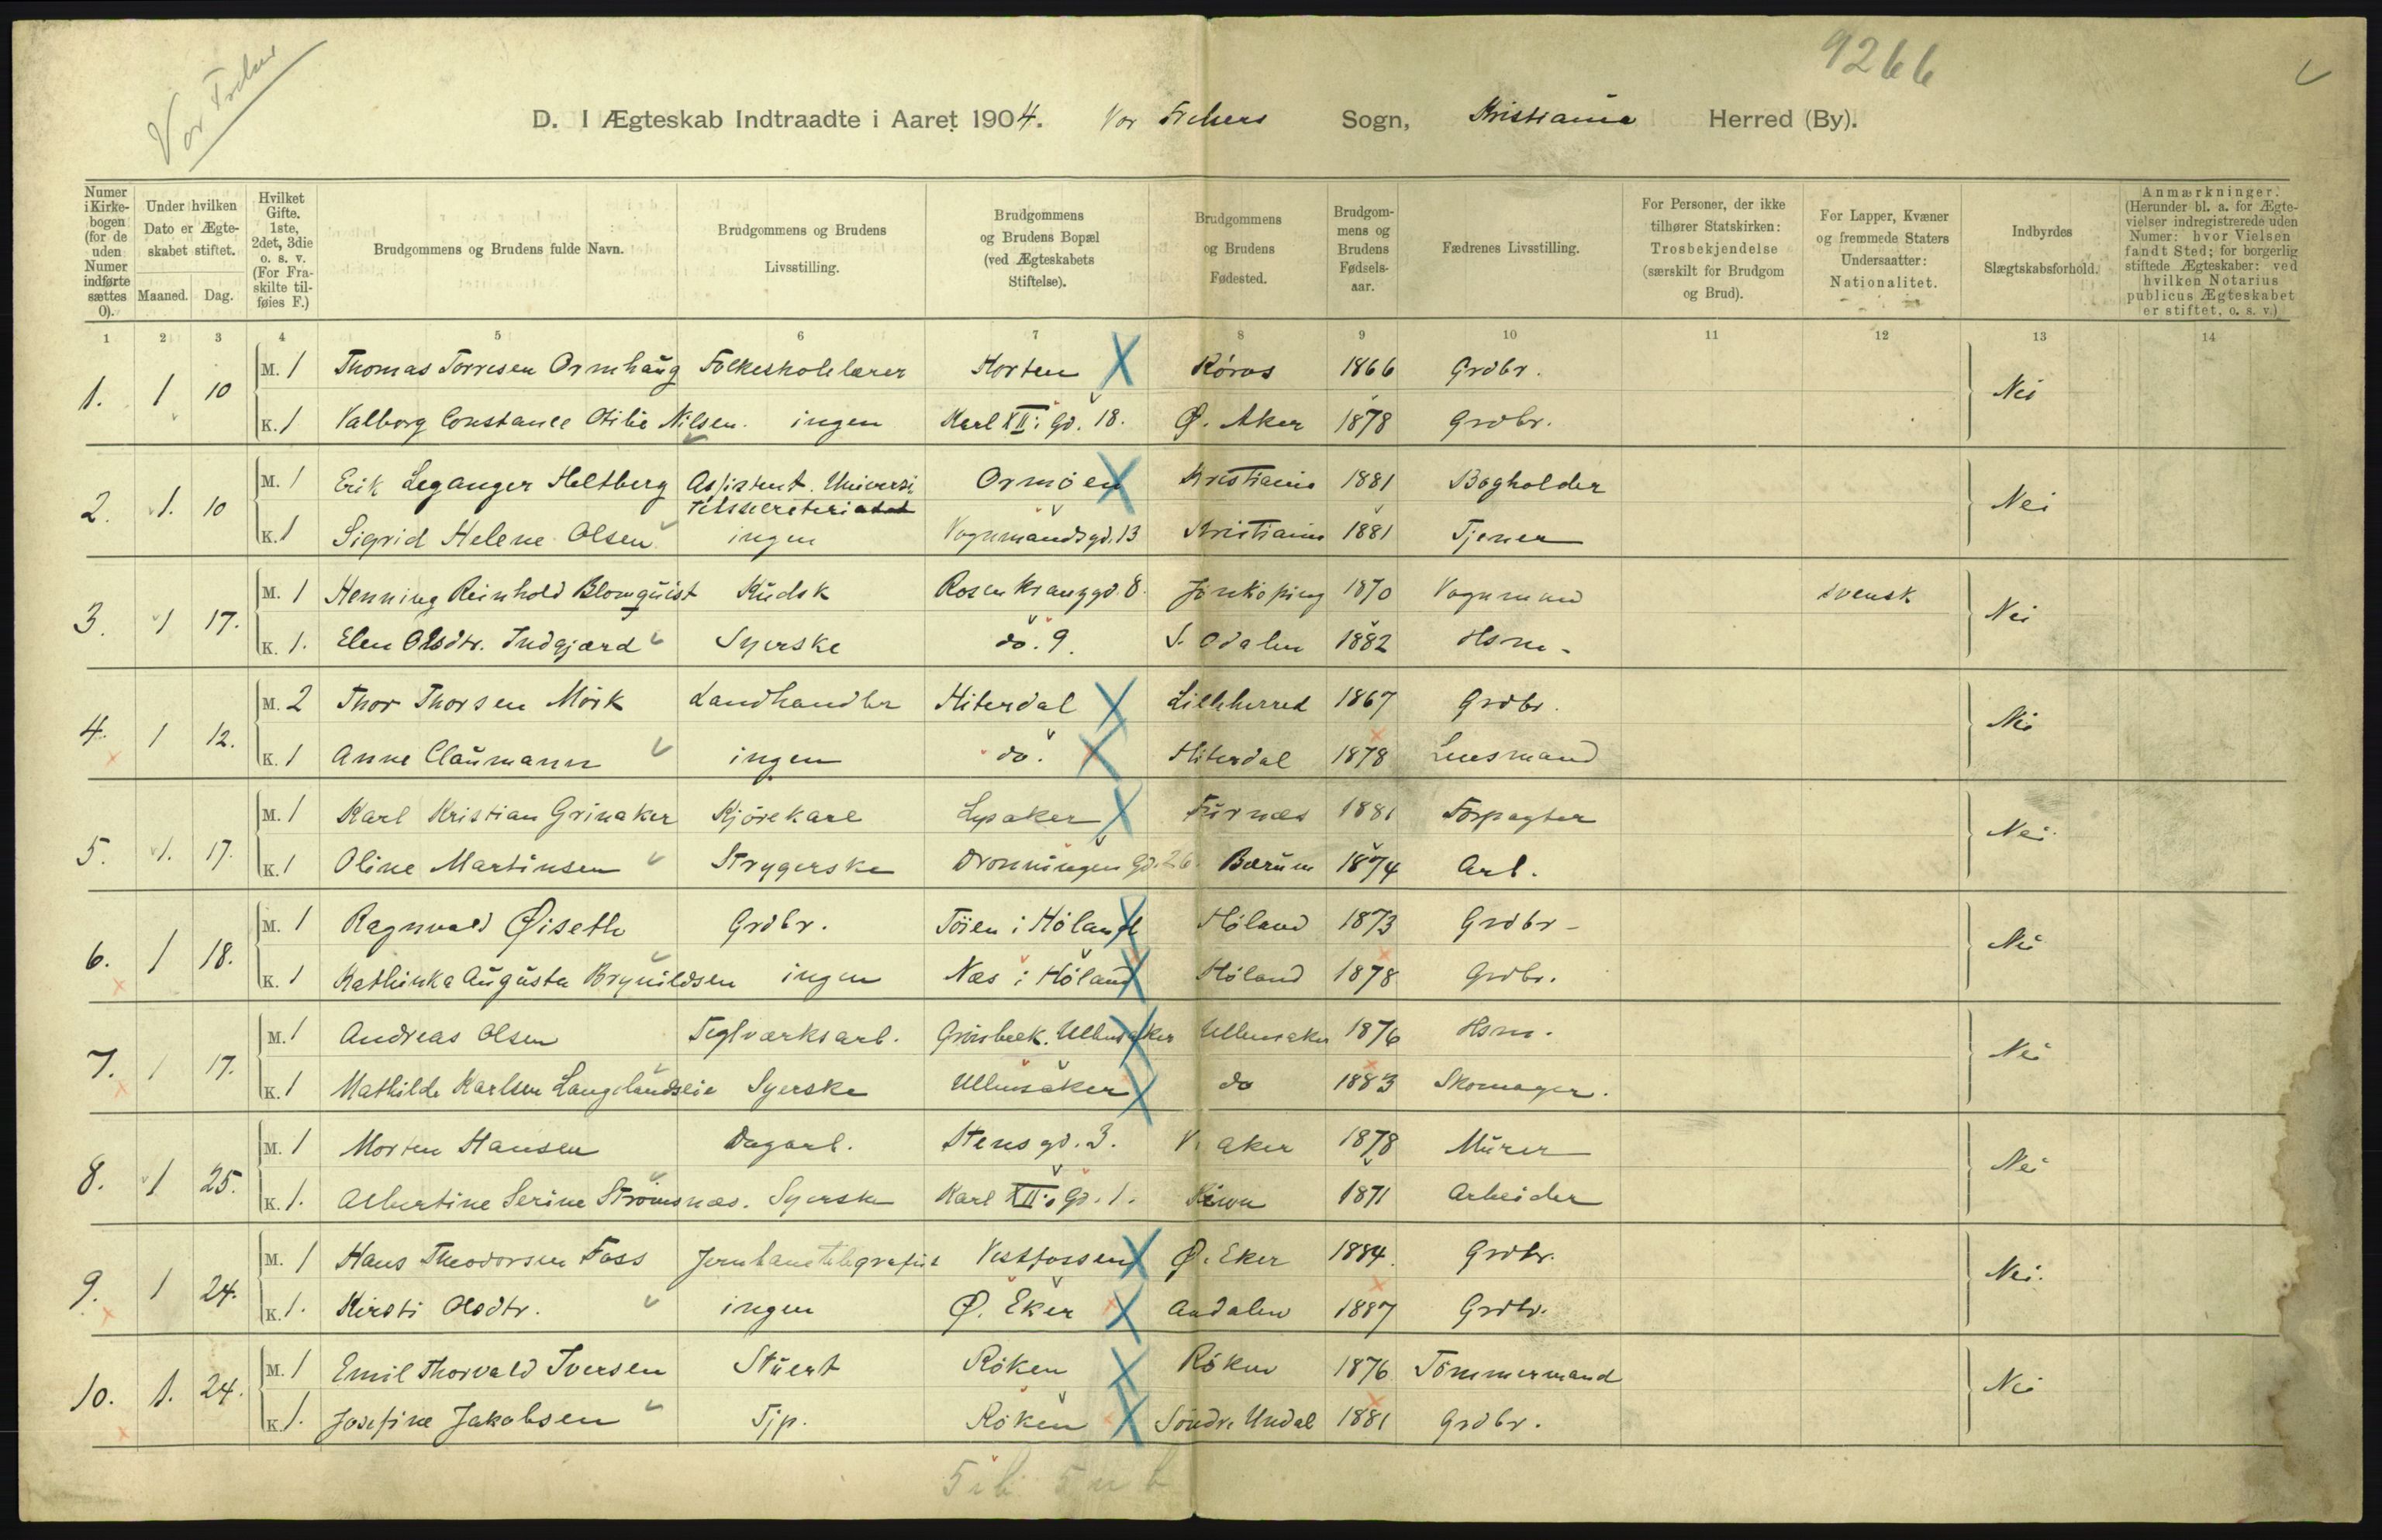 9266
Vor Frelser
D. I Ægteskab Indtraadte i Aaret 1904. Vor Frelsers Sogn, Kristiania Herred (By).
Numer i Kirkebogen (for de uden Numer indførte sættes 0).
Under hvilken Dato er Ægteskabet stiftet. Maaned. Dag.
Hvilket Gifte. 1ste, 2det, 3die o. s. v. (For Fraskilte tilføies F.)
Brudgommens og Brudens fulde Navn.
Brudgommens og Brudens Livsstilling.
Brudgommens og Brudens Bopæl (ved Ægteskabets Stiftelse).
Brudgommens og Brudens Fødested.
Brudgommens og Brudens Fødselsaar.
Fædrenes Livsstilling.
For Personer, der ikke tilhører Statskirken: Trosbekjendelse (særskilt for Brudgom og Brud).
For Lapper, Kvæner og fremmede Staters Undersaatter: Nationalitet.
Indbyrdes Slægtskabsforhold.
Anmærkninger. (Herunder bl. a. for Ægtevielser indregistrerede uden Numer: hvor Vielsen fandt Sted; for borgerlig stiftede Ægteskaber: ved hvilken Notarius publicus Ægteskabet er stiftet, o. s. v.)
1 2 3 4 5 6 7 8 9 10 11 12 13 14
1. 1 10 M. 1 Thomas Torresen Ormhaug Folkeskolelærer Horten Røros 1866 Grdbr. Nei
K. 1 Valborg Constance Otilie Nilsen. ingen Karl XII: Gd. 18. Ø. Aker 1878 Grdbr.
2. 1. 10 M. 1 Erik Leganger Heltberg Assistent. Universi- Ormøen Kristiania 1881 Bogholder Nei
tetssecreteriatet
K. 1 Sigrid Helene Olsen ingen Vognmandsgd. 13 Kristiania 1881 Tjener
3. 1 17. M. 1 Henning Reinhold Blomquist Kudsk Rosenkranzgd. 8. Jönköping 1870 Vognmand svensk Nei
K. 1. Elen Olsdtr. Indgjærd Syerske do. 9. S. Odalen 1882 Hsm.
4. 1 12. M. 2 Thor Thorsen Mørk Landhandler Hiterdal Lilleherred 1867 Grdbr. Nei
K. 1 Anne Claumann ingen do. Hiterdal 1878 Lensmand
5. 1. 17. M. 1 Karl Kristian Grinaker Kjørekarl Lysaker Furnæs 1881 Forpagter Nei.
K. 1 Oline Martinsen Strygerske Dronningens Gd. 26. Bærum 1874 Arb.
6. 1 18. M. 1 Ragnvald Øiseth Grdbr. Töien i Høland Høland 1873 Grdbr Nei
K. 1 Kathinka Augusta Brynildsen ingen Næs i Høland Høland 1878 Grdbr.
7. 1 17. M. 1 Andreas Olsen Teglværksarb. Ullensaker Ullensaker 1876 Hsm. Nei
K. 1 Mathilde Karlsen Langelandseie Syerske Ullensaker do 1883 Skomager.
8. 1 25. M. 1 Morten Hansen Dagarb. Stensgd. 3. V. Aker 1878 Murer Nei
K. 1. Albertine Serine Strømsnæs. Syerske Karl XII's Gd. 1. 1871 Arbeider
9. 1 24. M. 1 Hans Theodorsen Foss Jernbanetelegrafist Vestfossen Ø. Eker 1884. Grdbr. Nei.
K. 1. Kirsti Olsdtr. ingen Ø. Eker 1887 Grdbr.
10. 1. 24. M. 1 Emil Thorvald Iversen Stuert Røken Røken 1876 Tømmermand Nei
K. 1. Josefine Jakobsen Tjp. Røken Søndre Undal 1881 Grdbr.